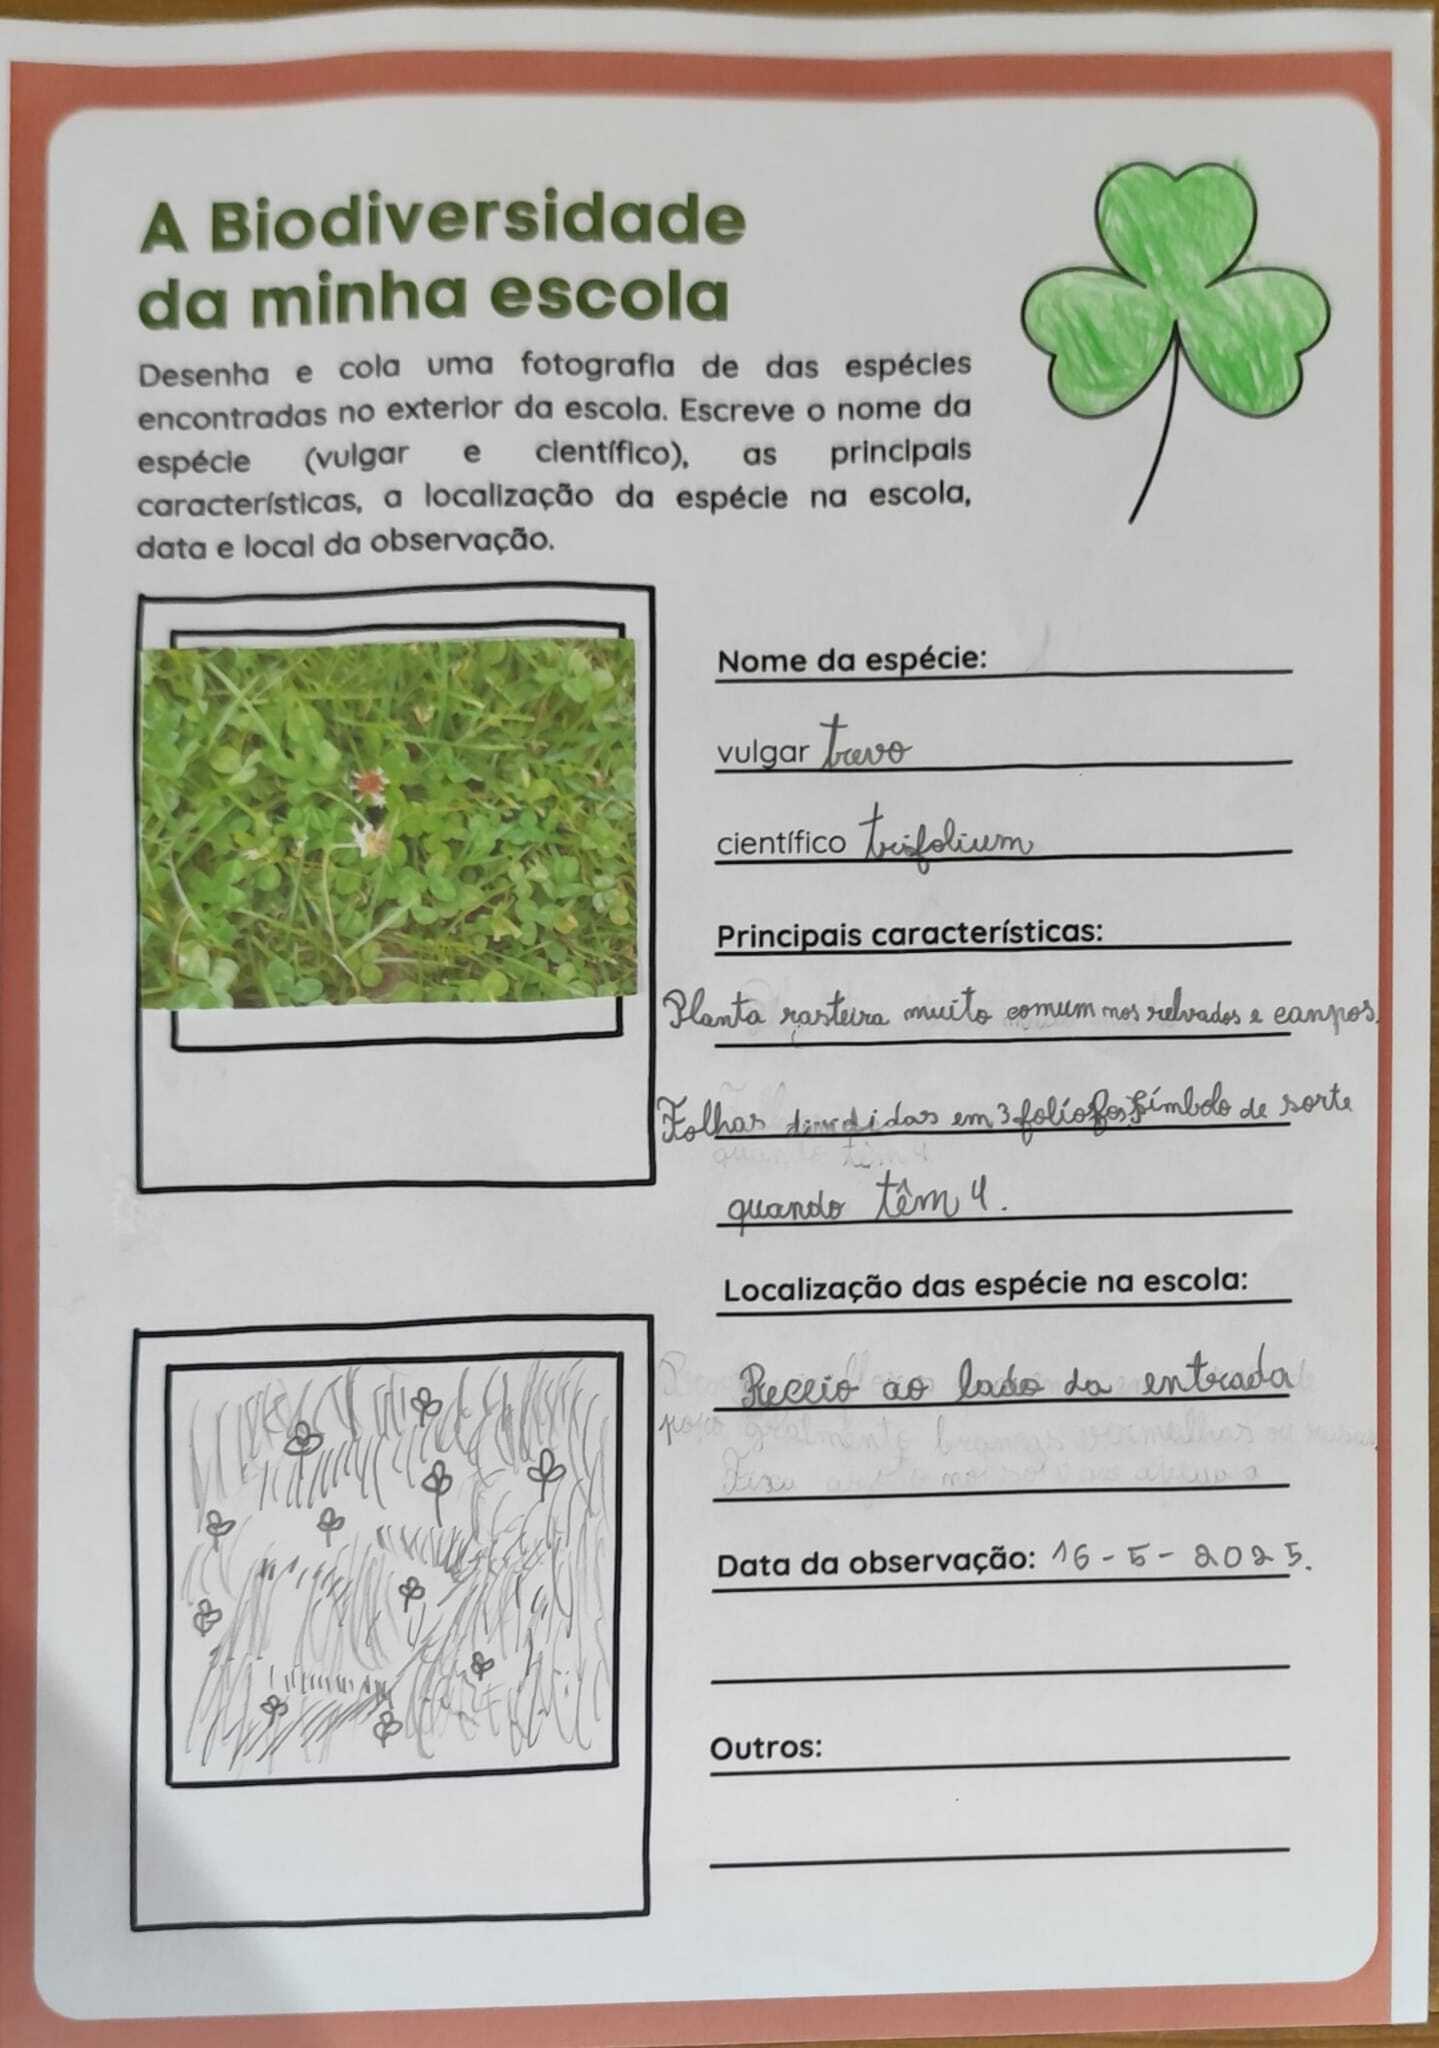 A Biodiversidade
da minha escola
Desenha e cola uma fotografia de das espécies
encontradas no exterior da escola. Escreve o nome da
espécie (vulgar e científico), as principais
características, a localização da espécie na escola,
data e local da observação.
Nome da espécie:
vulgar trevo
científico trifolium
Principais características:
Planta rasteira muito comum nos relvados e campos.
Folhas divididas em 3 folíolos, símbolo de sorte
quando têm 4.
Localização das espécie na escola:
Recreio ao lado da entrada
Data da observação: 16-5-2025.
Outros: